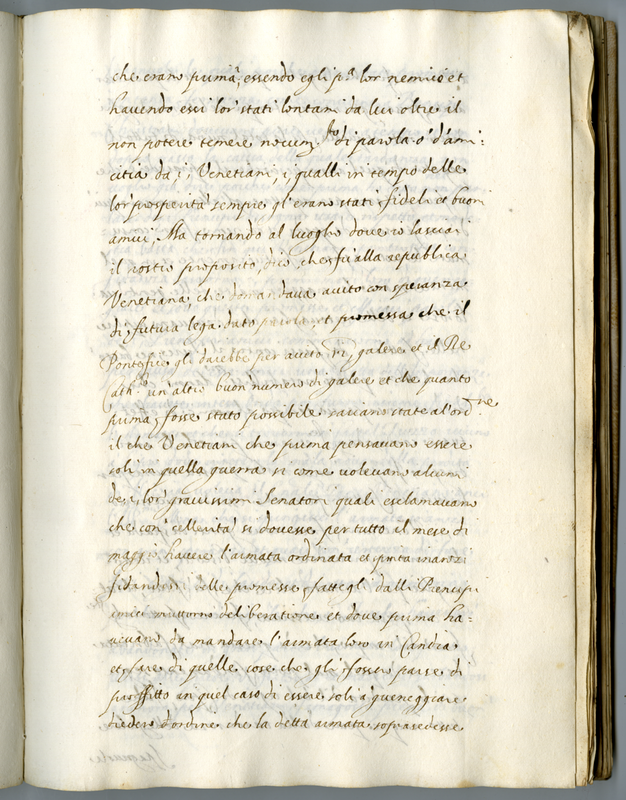 che erano prima, essendo egli pª lor nemico et
havendo essi lor stati lontani da lui oltre il
non potere temere nocum.to di parola o' d'ami:
citia da i, Venetiani, i qualli in tempo delle
lor prosperita sempre gl'erano stati fideli et buoni
amici, Ma tornando al luogho dove io lasciai
il nostro proposito, dico, che fù alla republica
Venetiana, che domandava aiuto con speranza
di, futura lega dato parola, et promessa che il
Pontefice gli darebbe per aiuto galere et il Re
Cath.co un'altro buon numero di galere et che quanto
prima, fosse stato possibile sariano state al'ord.ne
il che Venetiani che prima pensavano essere
soli in quella guerra si come volevano alcuni
de, i, lor gravissimi Senatori quali esclamavano
che con' cellerità si dovesse per tutto il mese di
maggio havere l'armata ordinata et spinta inanzi
fidandosi delle promesse, fattegli dalli Principi
amici muttorno deliberatione et dove prima ha=
vevano da mandare l'armata loro in Candia
et, fare di quelle cose che gli, fosser parse di
proffitto in quel caso di essere soli à guereggiare
diedero d'ordine che la detta armata soprasedesse